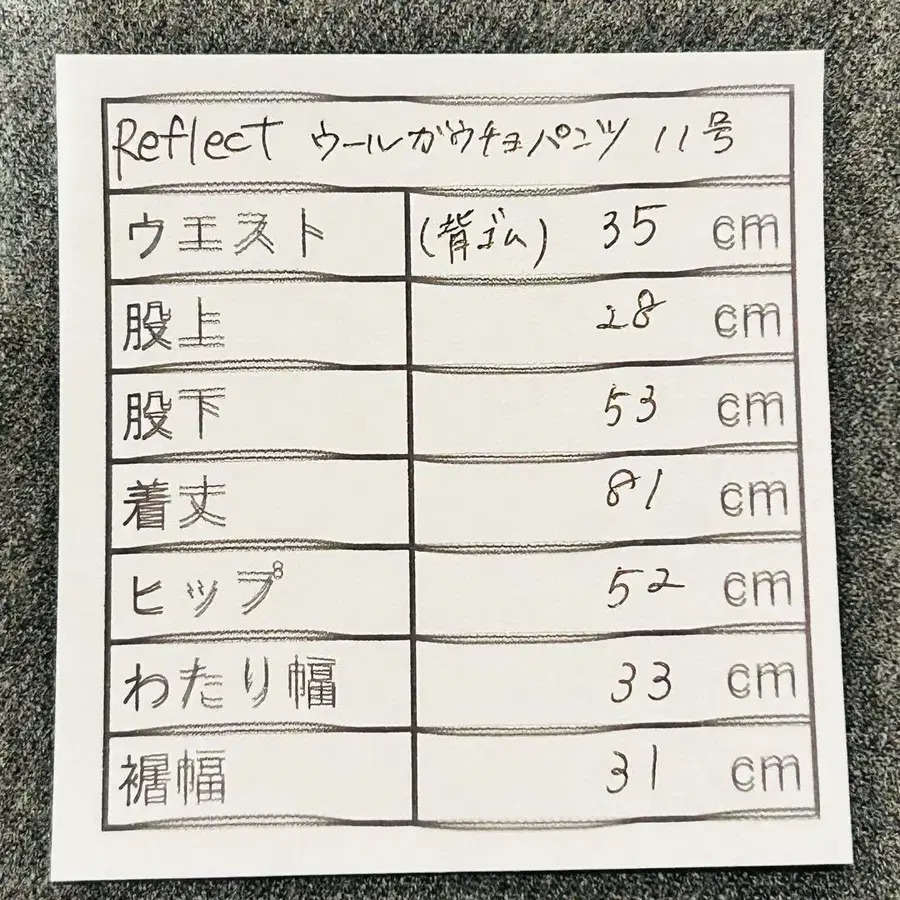 Reflect ウールガウチョパンツ 11号
ウエスト (背ゴム) 35 cm
股上 28 cm
股下 53 cm
着丈 81 cm
ヒップ 52 cm
わたり幅 33 cm
裾幅 31 cm